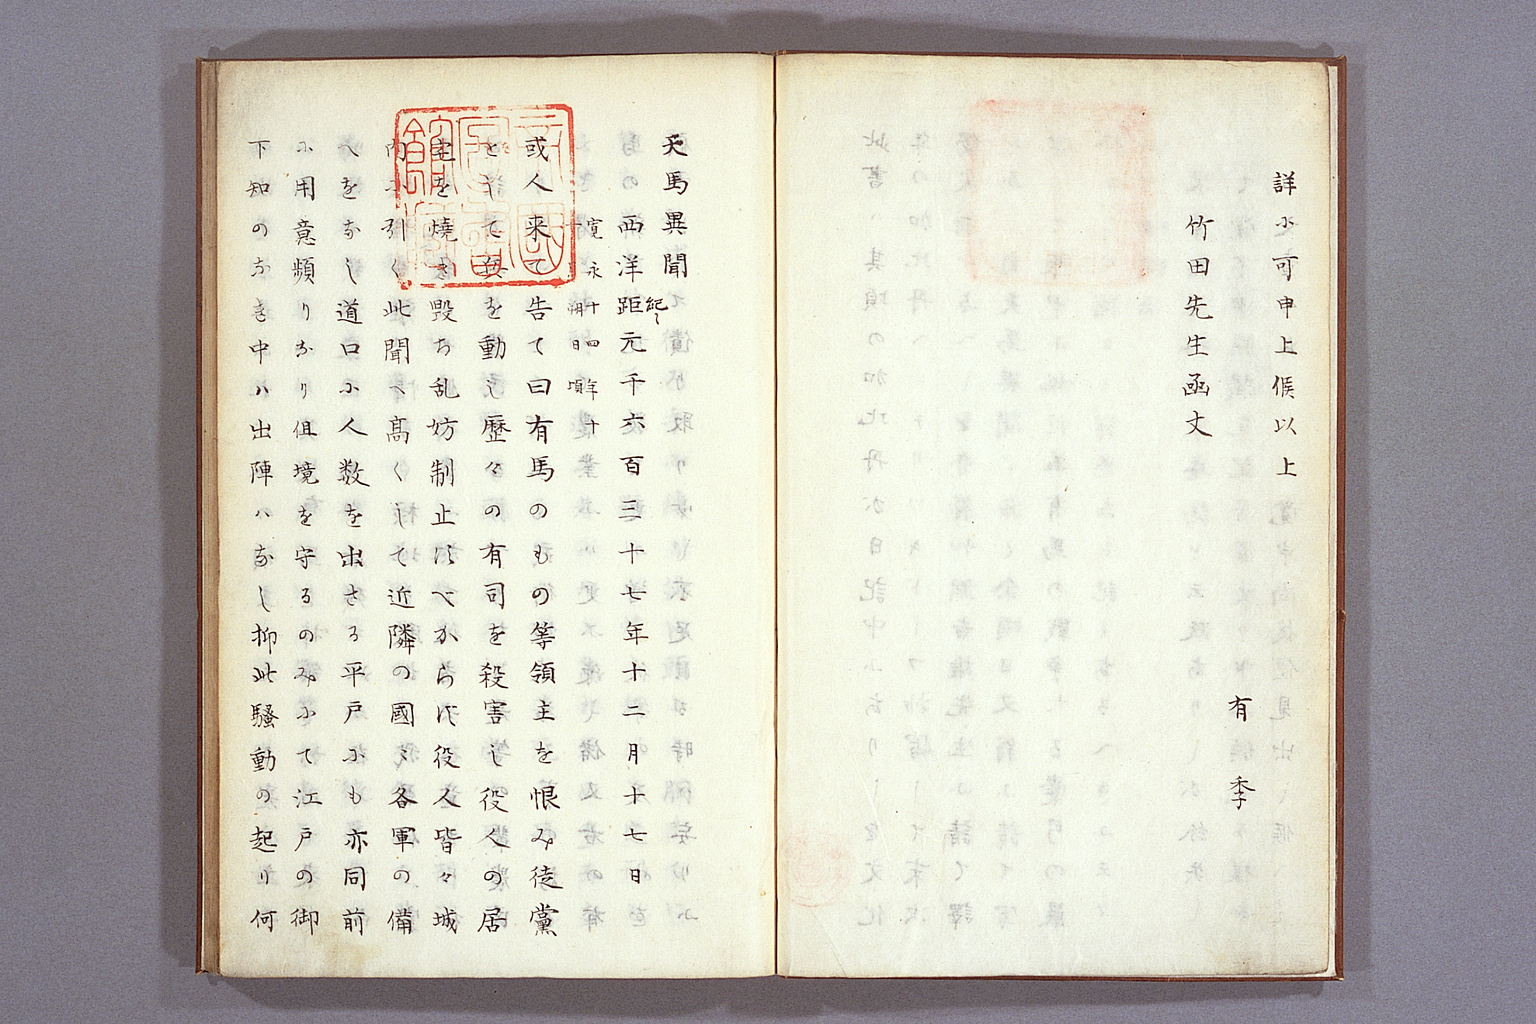 詳ニ可申上候以上
竹田先生函丈
有季
天馬異聞
西洋距元千六百三十七年十二月十七日
紀
寛永十四年十
一朔日頃
或人来て告て曰有馬のもの等領主を恨み徒黨
をなして兵を動し歴々の有司を殺害し役人の居
宅を焼き毀ち乱妨制止すへからす役人皆々城
内に引く此聞へ高くして近隣の國々各軍の備
へをなし道口に人数を出さる平戸にも亦同前
に用意頻りなり但境を守るのみにて江戸の御
下知のなき中ハ出陣ハなし抑此騒動の起リ何